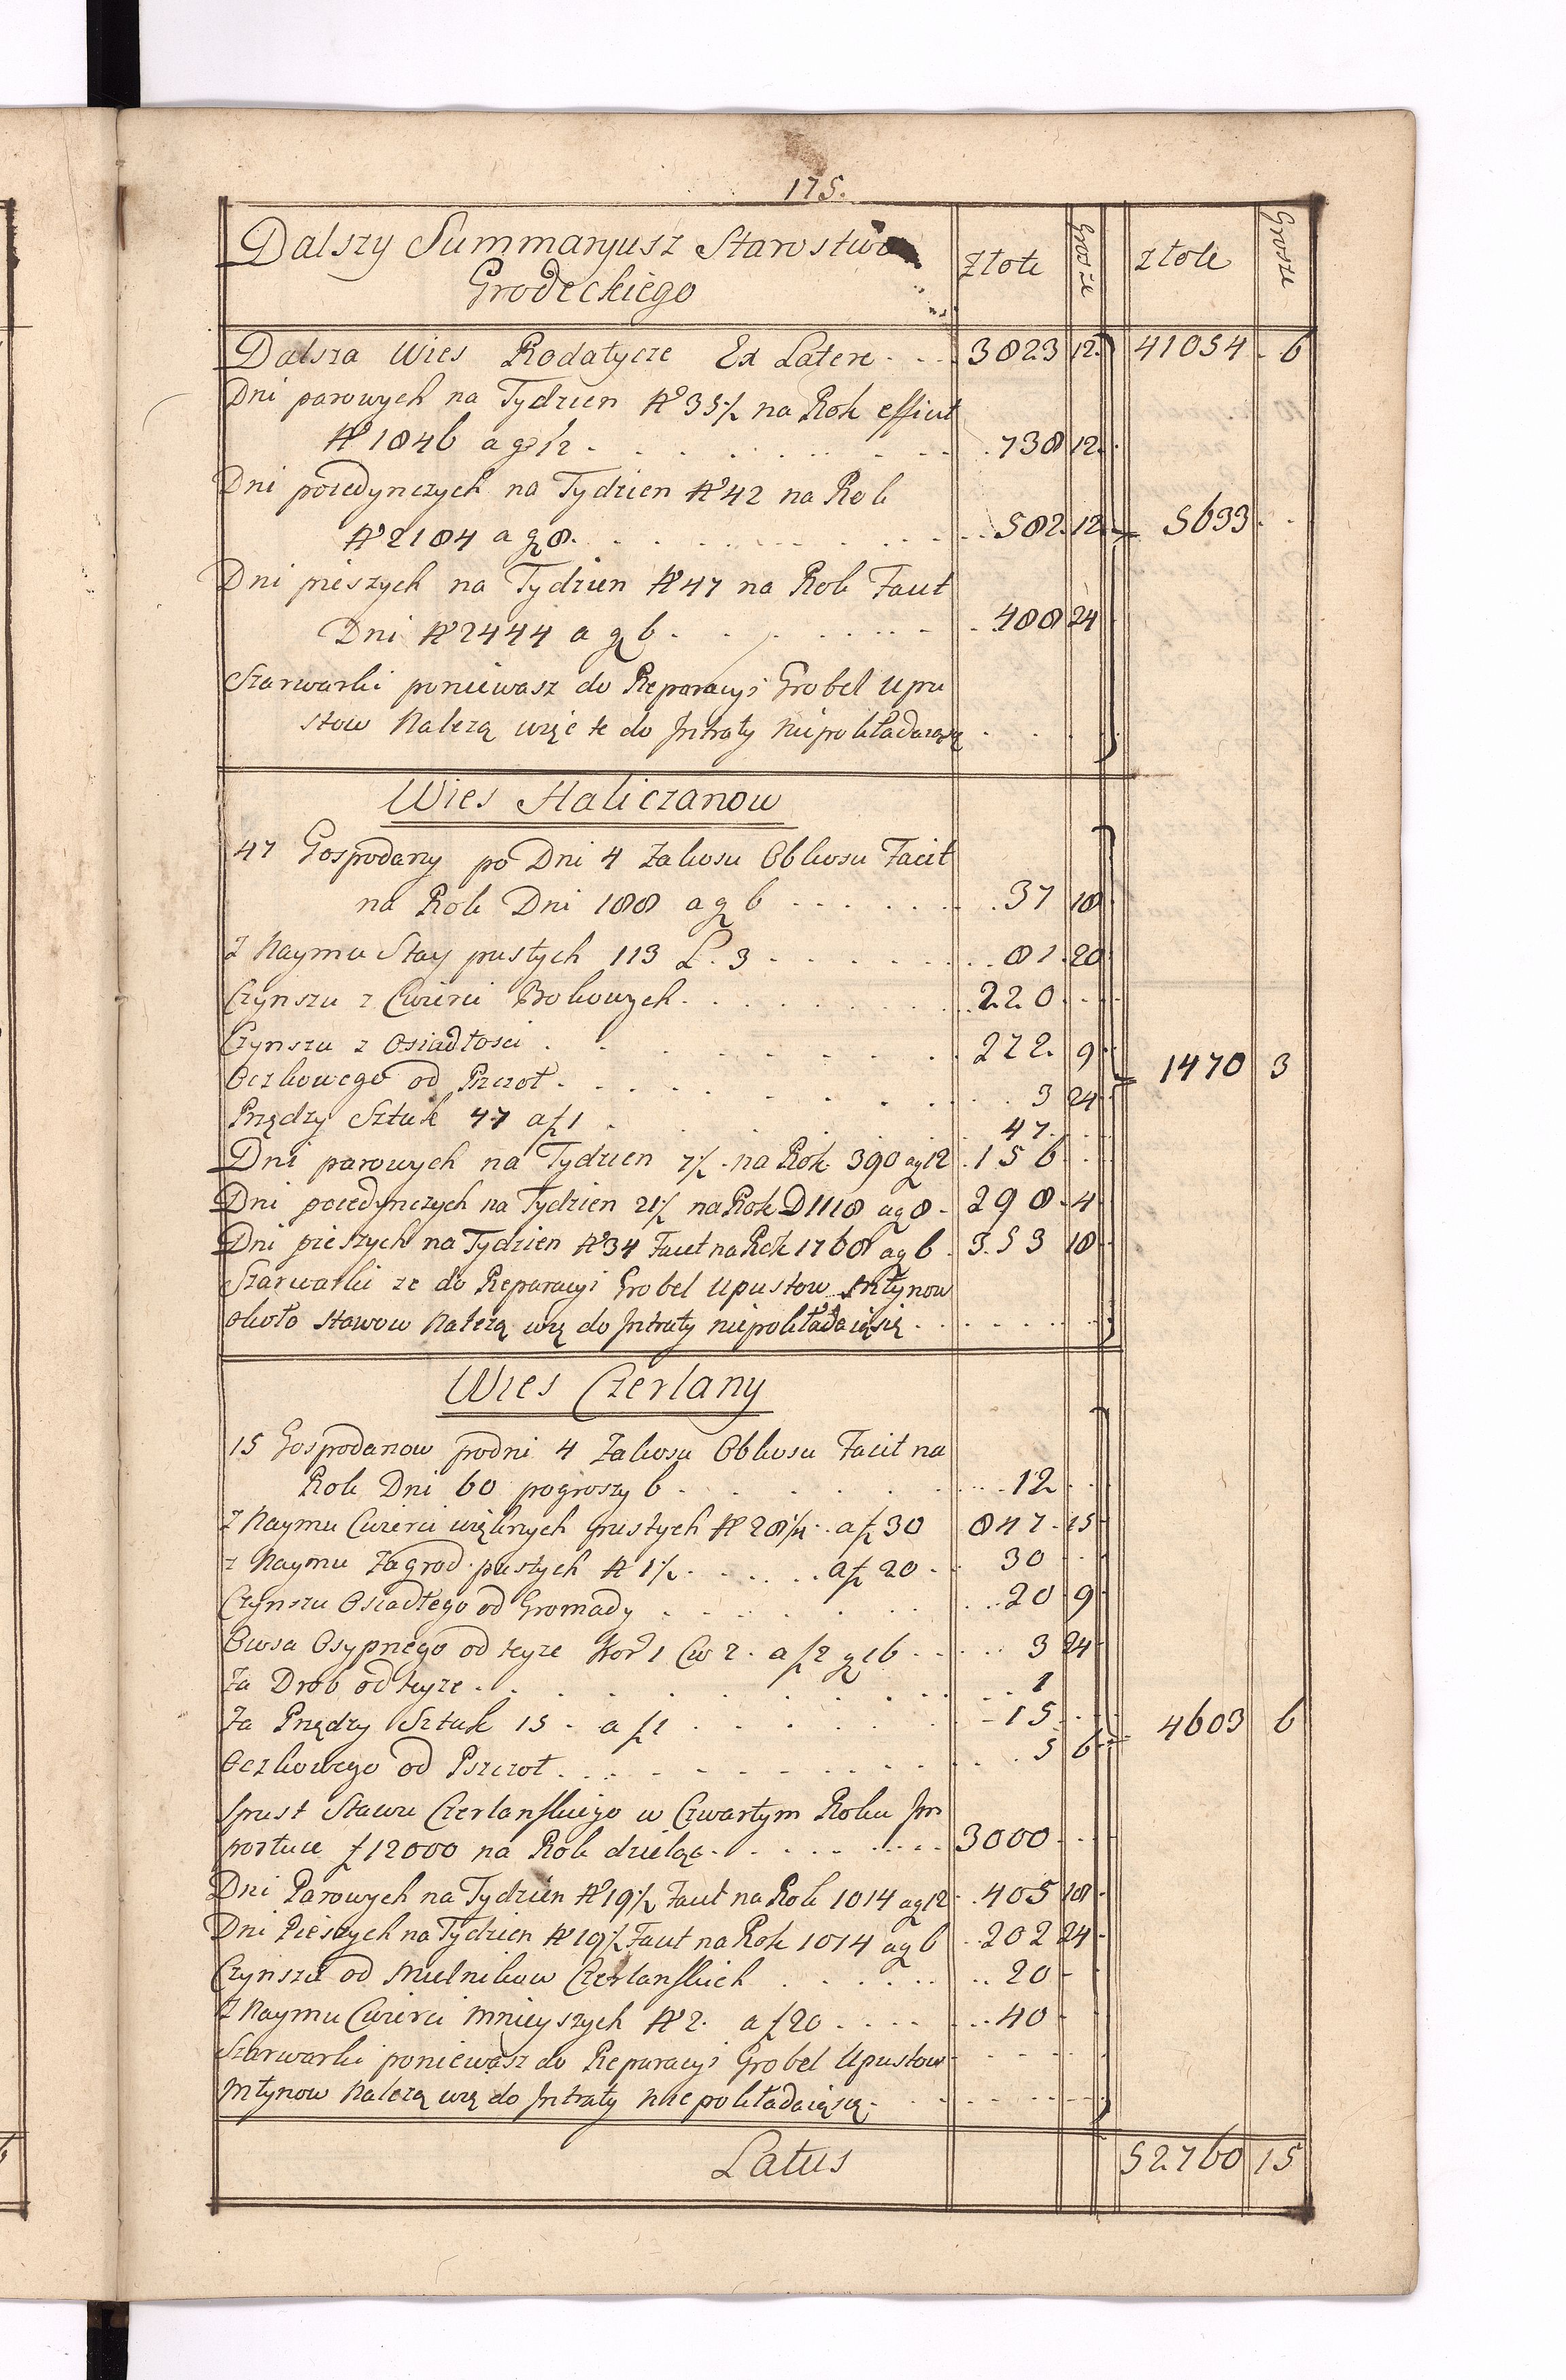 175.
Dalszy Summaryusz Starostwa Złote Grosze złote Grosze
Grodeckiego
Dalsza Wies Rodatycze Ex Latere 3823 12 41054 6
Dni parowych na Tydzien No 35½ na Rok efficit
No 1846 a gr 12 738 12
Dni poiedynczych na Tydzien No 42 na Rok
No 2184 a gr 8 582 12 5633
Dni pieszych na Tydzien No 47 na Rok Facit
Dni No 2444 a gr 6 488 24
Szarwarki poniewasz do Reparacyi Grobel Upu
stow Nalezą więc te do Intraty niepokładaiąsię
Wies Haliczanow
47 Gospodarzy po Dni 4 Zakosu Obkosu Facit
na Rok Dni 188 a gr 6 37 18
z Naymu Stay pustych 113 3 81 20
Czynszu z Cwierci Bokowych 220
Czynszu z Osiadłosci 272 9 1470 3
Oczkowego od Pszczoł 3 24
Przędzy Sztuk 47 a f 1 47
Dni parowych na Tydzien 7½ na Rok 390 a gr 12 156
Dni poiedynczych na Tydzien 21½ na Rok D 1118 a gr 8 298 4
Dni pieszych na Tydzien No 34 Facit na Rok 1768 a gr 6 353 18
Szarwarki ze do Reparacyi Grobel Upustow Młynow
około stawow Nalezą wię do Intraty niepokładaiąsię
Wies Czerlany
15 Gospodarzow po dni 4 Zakosu Obkosu Facit na
Rok Dni 60 po groszy 6 12
z Naymu Cwierci więknych pustych No 28¼ a f 30 847 15
z Naymu Zagrod pustych No 1½ a f 20 30
Czynszu Osiadłego od Gromady 20 9
Owsa Osypnego od teyze Kor 1 Cw 2 a f 2 gr 16 3 24
Za Drob od teyze 1
Za Przędzy Sztuk 15 a f 1 15 4603 6
Oczkowego od Pszczoł 5 6
Spust Stawu Czerlanskiego w Czwartym Roku Im
portuie f 12000 na Rok dzieląc 3000
Dni Parowych na Tydzien No 19½ Facit na Rok 1014 a gr 12 405 18
Dni Pieszych na Tydzien No 19½ Facit na Rok 1014 a gr 6 202 24
Czynszu od Mielnikow Czerlanskich 20
z Naymu Cwierci mnieyszych No 2 a f 20 40
Szarwarki poniewasz do Reparacyi Grobel Upustow
Młynow Nalezą wię do Intraty nie pokładaiąsię
Latus 52760 15